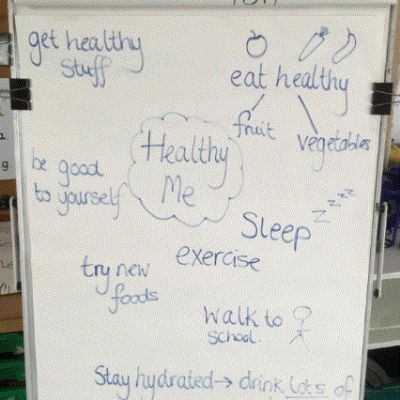 get healthy
stuff
eat healthy
fruit
vegetables
Healthy
Me
be good
to yourself
Sleep zzzzz
exercise
try new
foods
walk to
school.
Stay hydrated → drink lots of